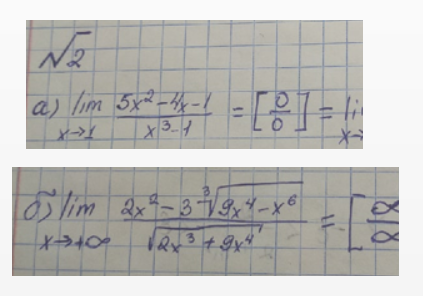 √2
а) lim x→1 (5x² - 4x - 1)/(x³ - 1) = [0/0] = li
x→
б) lim x→+∞ (2x² - 3∛(9x⁴ - x⁶))/√(2x³ + 9x⁴) = [∞/∞